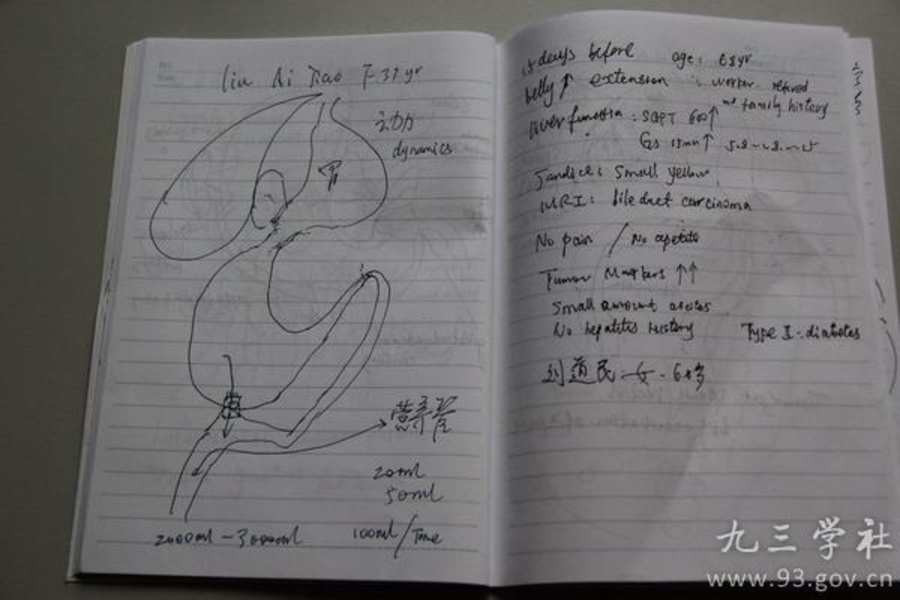 Liu Ai Jiao F 37 yr
动力
dynamics
胃
营养管
20ml
50ml
2000ml - 3000ml
100ml/Time
15 days before age: 68yr
belly ↑ extension : worker retired
no family history
liver function : SGPT 600↑
Jandice: Small yellow
MRI: bile duct carcinoma
No pain / No apetite
Tumor Markers ↑↑
Small amount ascites
No hepatites history Type II-diabetes
刘道民-女-68岁
九三学社
www.93.gov.cn